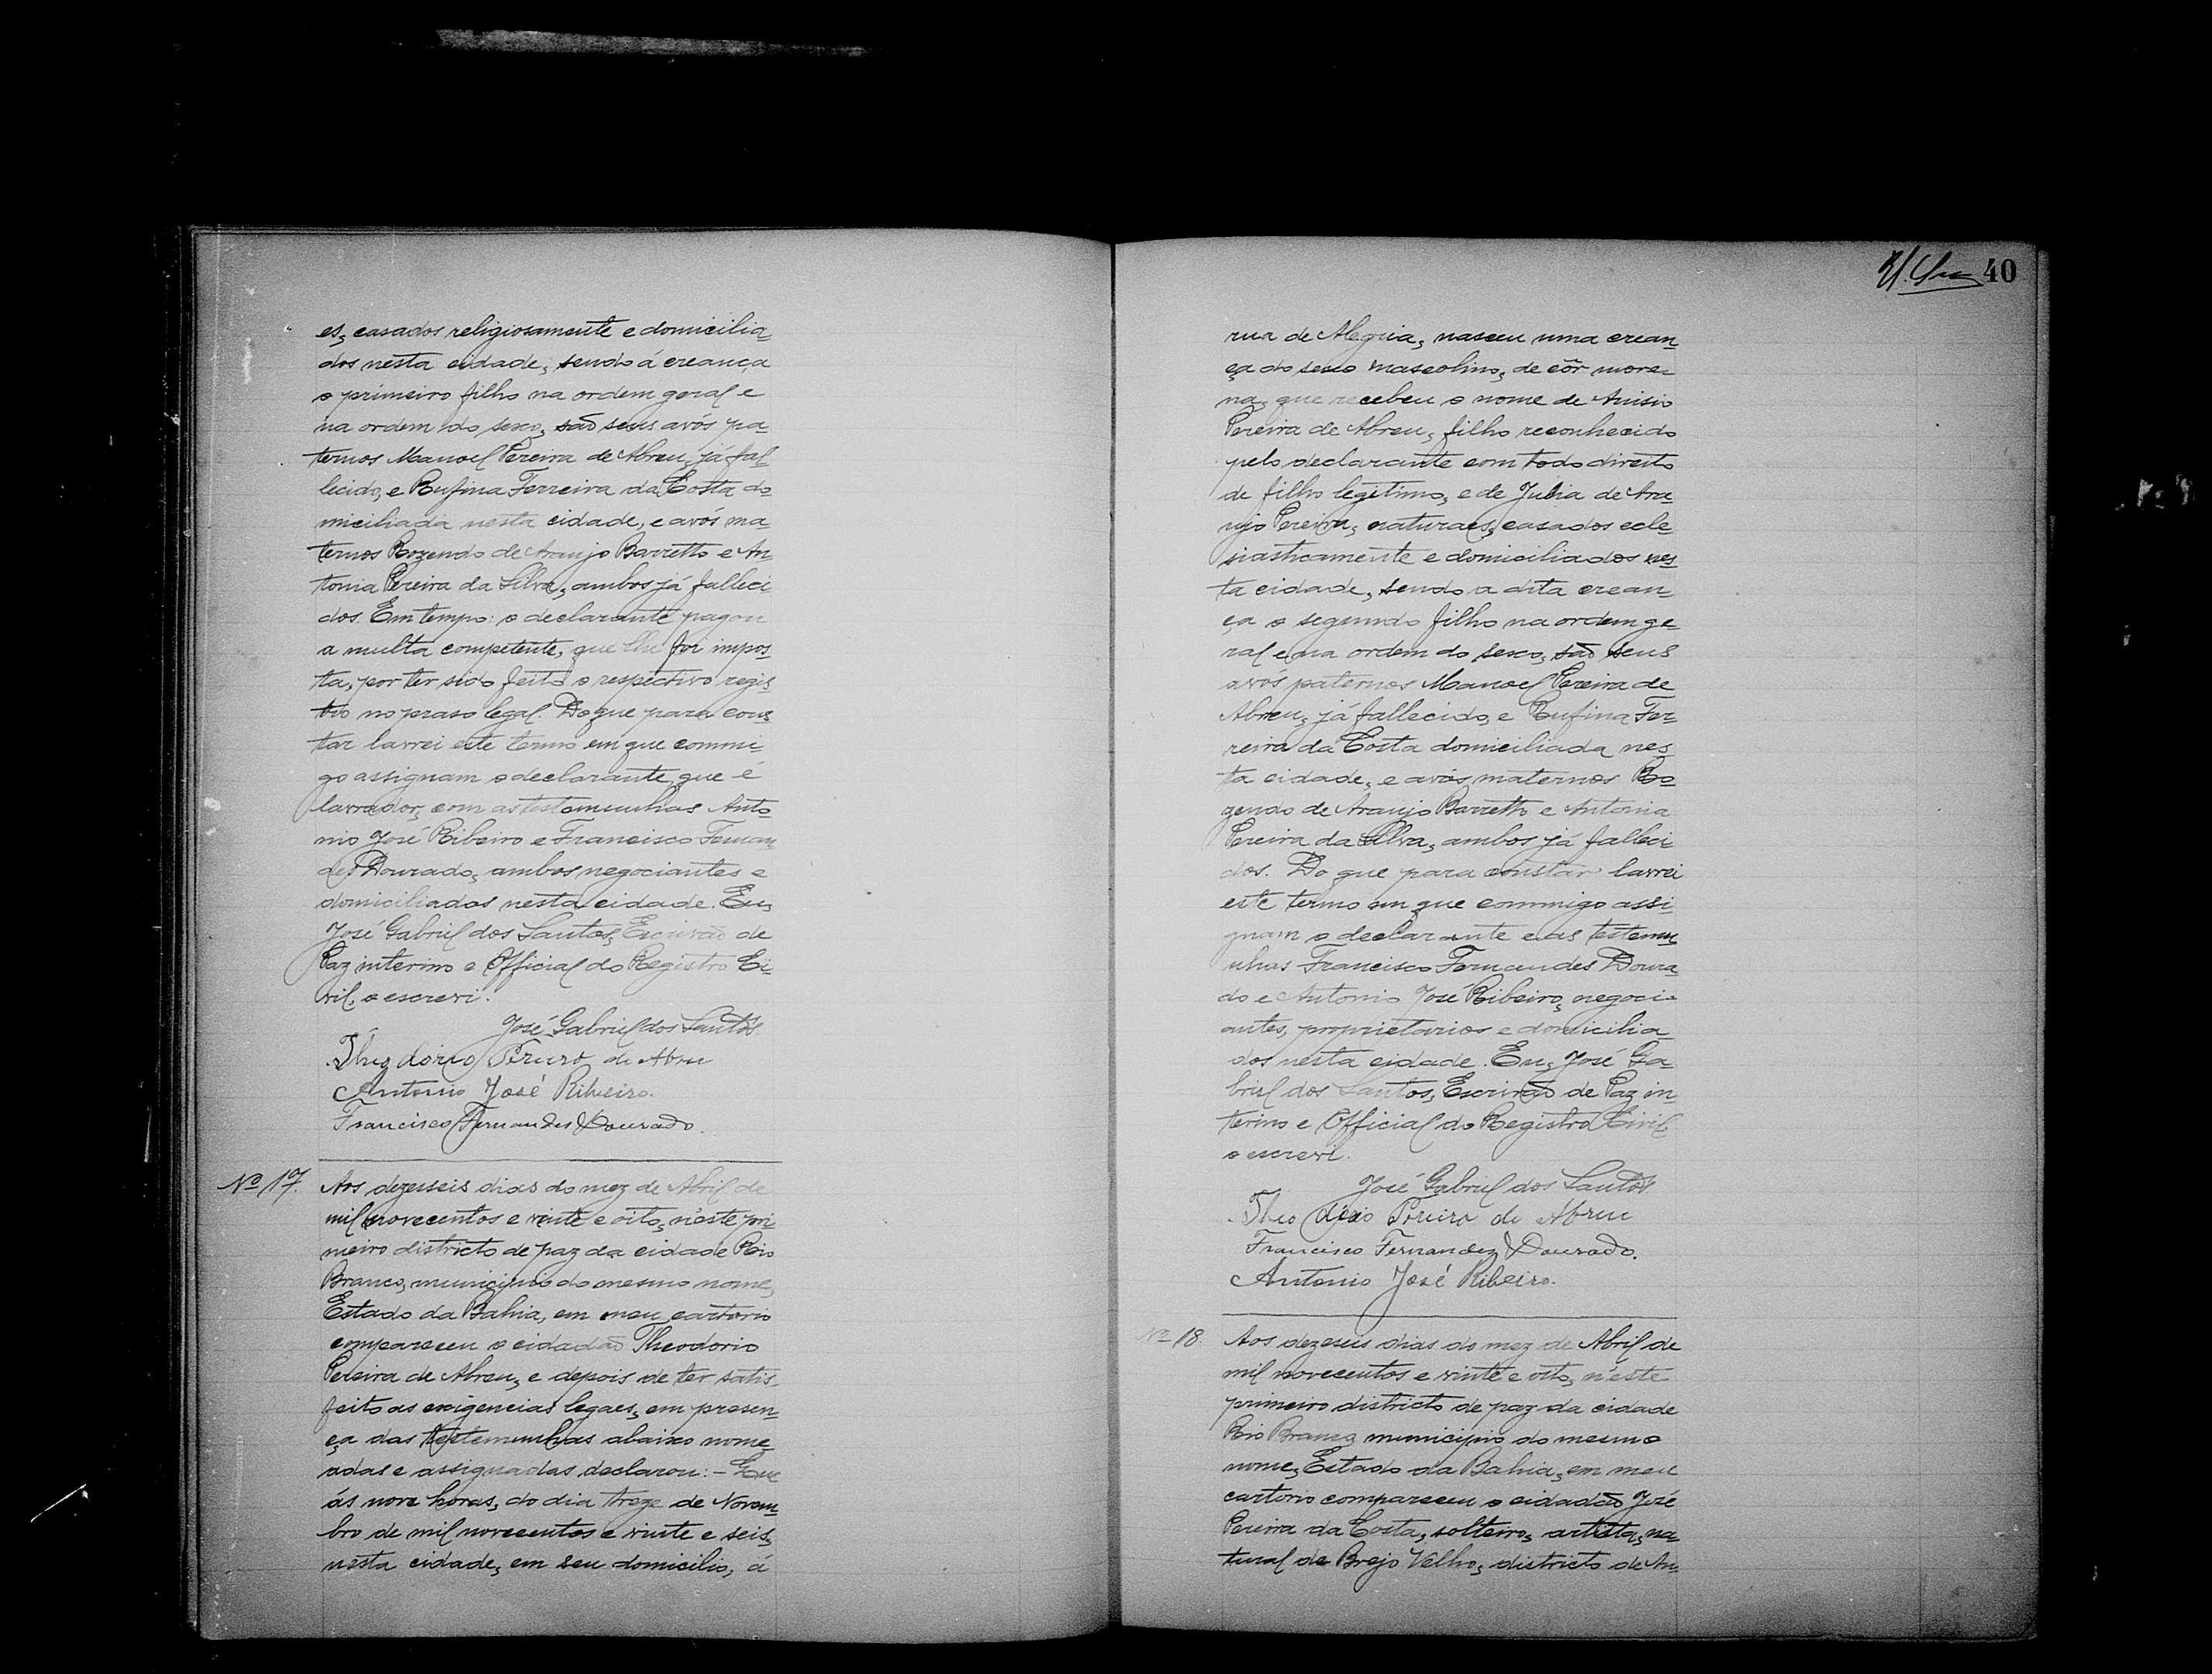 es, casados religiosamente e domicilia-
dos nesta cidade, sendo á creança
o primeiro filho na ordem geral e
na ordem do sexo, são seus avós pa-
ternos Manoel Pereira de Abreu, já fal-
lecido, e Rufina Ferreira da Costa do-
miciliada nesta cidade, e avós ma-
ternos Rozendo de Araujo Barretto e An-
tonia Pereira da Silva, ambos já falleci
dos. Em tempo: o declarante pagou
a multa competente, que lhe foi impos-
ta, por ter sido feito o respectivo regis-
tro no praso legal. Do que para cons
tar lavrei este termo em que commi-
go assignam o declarante, que é
lavrador, com as testemunhas Anto-
nio José Ribeiro e Francisco Fernan
des Dourado, ambos negociantes e
domiciliados nesta cidade. Eu,
José Gabriel dos Santos, Escrivão de
Paz interino e Official do Registro Ci-
vil, o escrevi.
José Gabriel dos Santos
Theodorio Pereira de Abreu
Antonio José Ribeiro.
Francisco Fernandes Dourado.
Nº 17. Aos dezesseis dias do mez de Abril de
mil novecentos e vinte e oito, n'este pri-
meiro districto de paz da cidade Rio
Branco, municipio do mesmo nome,
Estado da Bahia, em meu cartorio
compareceu o cidadão Theodorio
Pereira de Abreu, e depois de ter satis-
feito as exigencias legaes, em presen-
ça das testemunhas abaixo nome-
adas e assignadas declarou: - Que
ás nove horas, do dia treze de Novem-
bro de mil novecentos e vinte e seis,
nesta cidade, em seu domicilio, á
40
rua de Alegria, nasceu uma crean-
ça do sexo mascolino, de côr more-
na, que recebeu o nome de Anisio
Pereira de Abreu, filho reconhecido
pelo declarante com todo direito
de filho legitimo, e de Julia de Ara-
ujo Pereira, naturaes, casados ecle-
siasticamente e domiciliados nes-
ta cidade, sendo a dita crean-
ça o segundo filho na ordem ge-
ral e na ordem do sexo, são seus
avós paternos Manoel Pereira de
Abreu, já fallecido, e Rufina Fer-
reira da Costa domiciliada nes-
ta cidade, e avós maternos Ro-
zendo de Araujo Barretto e Antonia
Pereira da Silva, ambos já falleci
dos. Do que para constar lavrei
este termo em que commigo assi-
gnam o declarante e as testemu-
nhas Francisco Fernandes Doura-
do e Antonio José Ribeiro, negoci-
antes, proprietarios e domicilia-
dos nesta cidade. Eu, José Ga-
briel dos Santos, Escrivão de Paz in-
terino e Official do Registro Civil
o escrevi.
José Gabriel dos Santos
Theodorio Pereira de Abreu
Francisco Fernandez Dourado.
Antonio José Ribeiro.
Nº 18. Aos dezeseis dias do mez de Abril de
mil novecentos e vinte e oito, n'este
primeiro districto de paz da cidade
Rio Branco, municipio do mesmo
nome, Estado da Bahia, em meu
cartorio compareceu o cidadão José
Pereira da Costa, solteiro, artista, na-
tural de Brejo Velho, districto de An-